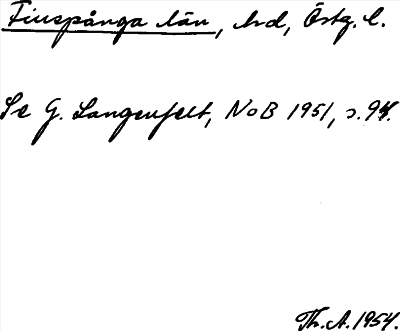 Finspånga län, hrd, Östg. l.
Se G. Langenfelt, NoB 1951, s. 94.
Th. A. 1954.